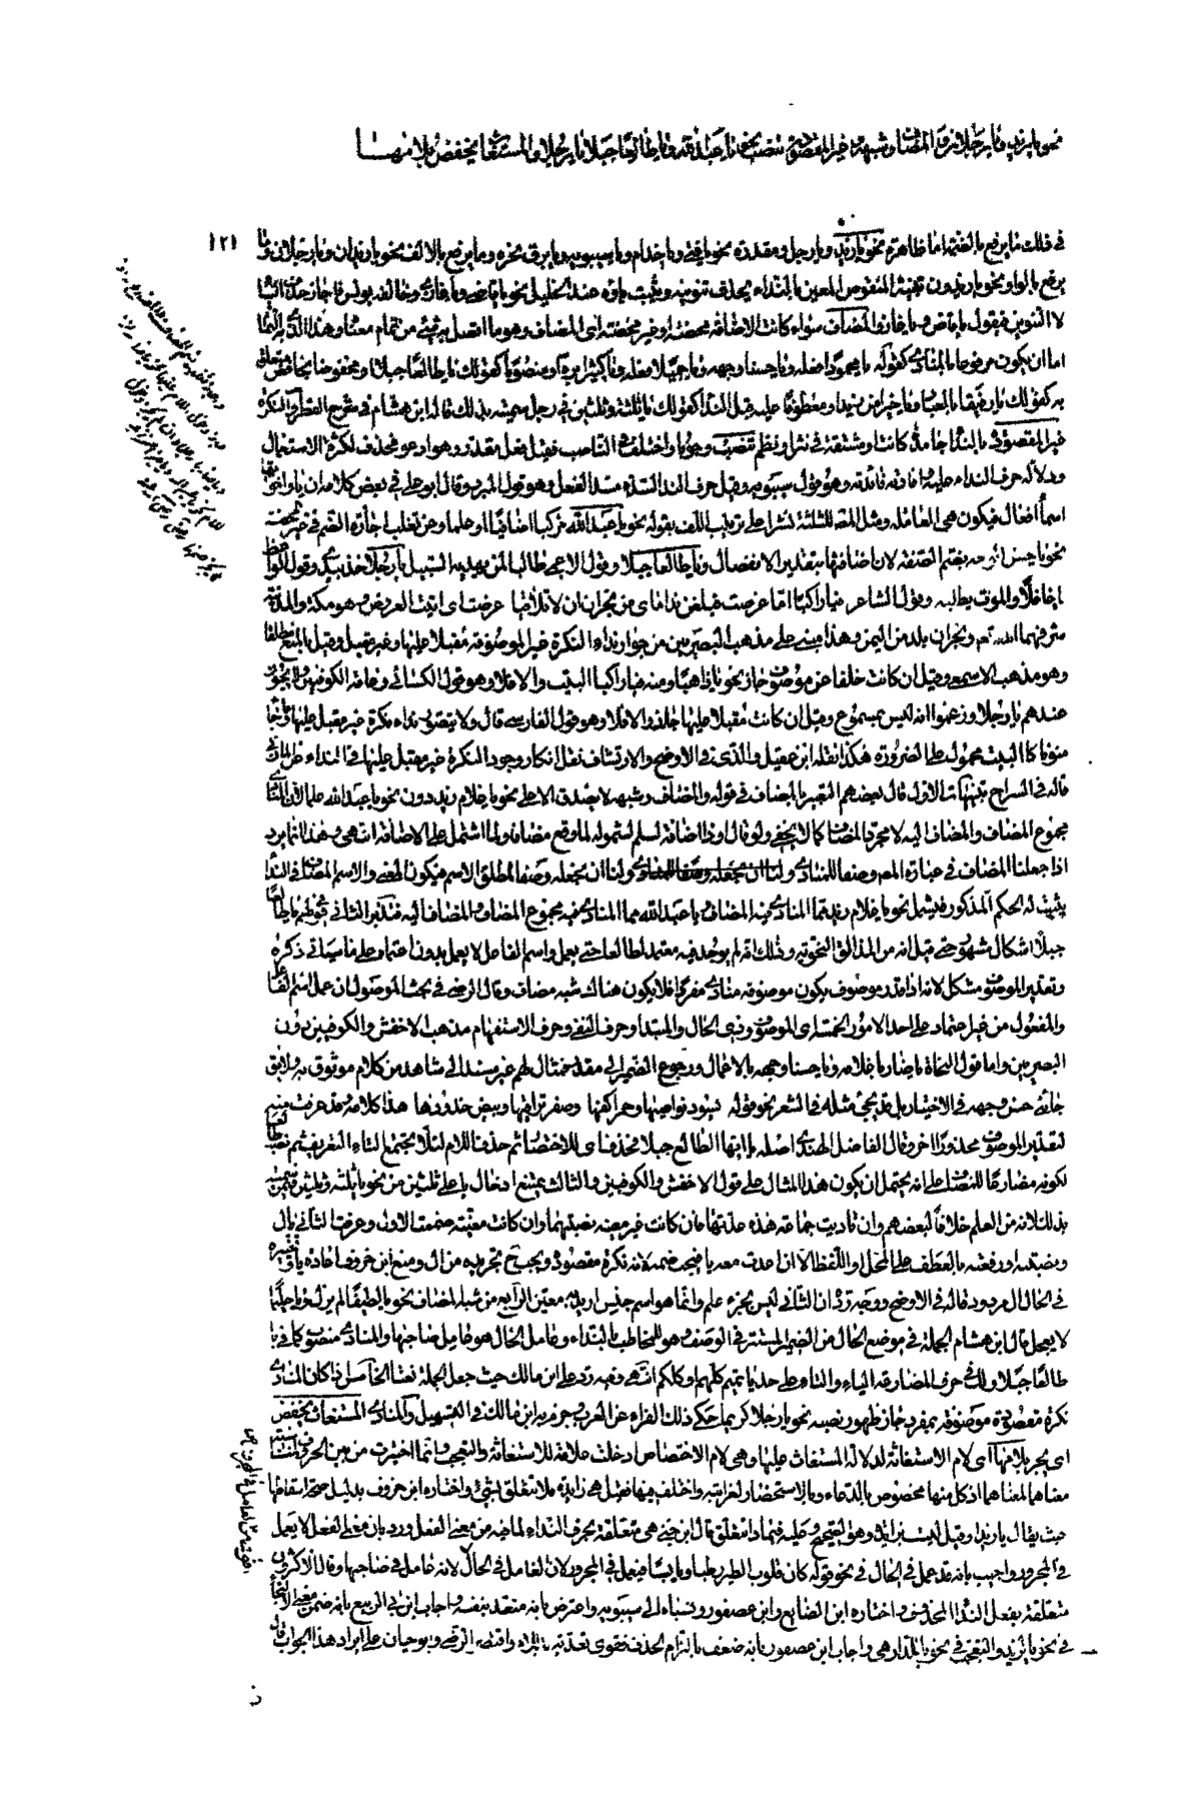 نحو يا زيد ويا رجلا فرقا المضاف وشبهه وغير المقصودة تنصب نحو يا عبد الله ويا طالعا جبلا يا رجلا والمستغاث يخفض بلا منها
١٢١
في ذلك ما يرفع بالضمة اما ظاهرة نحو يا زيد ويا رجل ومقدرة نحو يا فتى ويا حذام ويا سيبويه ويا برق نحره وما يرفع بالالف نحو يا زيدان ويا رجلان وما
يرفع بالواو نحو يا زيدون تنبيه المنقوص المعين بالنداء يحذف تنوينه ويثبت ياؤه عند الخليل نحو يا قاضي ويا غازي وخالفه يونس فاجاز حذف الياء
لا التنوين فيقول يا قاض ويا غاز والمضاف سواء كانت الاضافة محضة او غير محضة اى المضاف وهو ما اتصل به شئ من تمام معناه وهذا الذى به التمام
اما ان يكون مرفوعا بالمنادى كقوله يا محمودا فعله ويا حسنا وجهه ويا جميلا فعله ويا كثيرا بره او منصوبا كقولك يا طالعا جبلا او مخفوضا بخافض متعلق
به كقولك يا رفيقا بالعباد ويا خيرا من زيد او معطوفا عليه قبل النداء كقولك يا ثلثة وثلثين في رجل سميته بذلك قاله ابن هشام في شرح القطر والنكرة
غير المقصودة بالنداء جامدة كانت او مشتقة في نثر او نظم تنصب وجوبا واختلف في الناصب فقيل فعل مقدر وهو ادعو محذوف لكثرة الاستعمال
ودلالة حرف النداء عليه وافادته فائدته وهو قول سيبويه وقيل حرف النداء لسده مسد الفعل وهو قول المبرد وقال ابو علي في بعض كلامه ان يا واخواتها
اسماء افعال فيكون هي العاملة ومثل المص للثلثة نشرا على ترتيب اللف بقوله نحو يا عبد الله مركبا اضافيا او علما وعن ثعلب اجازة الضم في غير محضة
نحو يا حسن الوجه بضم الصفة لان اضافتها بتقدير الانفصال ويا طالعا جبلا وقول الاعمى طالبا لمن يهديه السبيل يا رجلا خذ بيدي وقول الواعظ
يا غافلا والموت يطلبه وقول الشاعر فيا راكبا اما عرضت فبلغن نداماي من نجران ان لا تلاقيا عرضت اى اتيت العروض وهو مكة والمدينة
شرفهما الله تعه ونجران بلد من اليمن وهذا مبني على مذهب البصريين من جواز نداء النكرة غير الموصوفة مقبلا عليها وغير مقبل وقيل بالمنع مطلقا
وهو مذهب الاصمعى وقيل ان كانت خلفا عن موصوف جاز نحو يا ذاهبا ومنه فيا راكبا البيت والا فلا وهو قول الكسائي وعامة الكوفيين ولا يجوز
عندهم يا رجلا وزعموا انه ليس بمسموع وقيل ان كانت مقبلا عليها جاز والا فلا وهو قول الفارسي قال ولا يتصور نداء نكرة غير مقبل عليها وما جاء
منونا كالبيت محمول على الضرورة هكذا نقله ابن عقيل والذى في الاوضح والارتشاف نقل انكار وجود النكرة غير مقبل عليها في النداء عن المازني
قاله في السراج تنبيهات الاول قال بعضهم التعبير بالمضاف في قوله والمضاف وشبهه لا يصدق الا على نحو يا غلام زيد دون نحو يا عبد الله علما لان المنادى
مجموع المضاف والمضاف اليه لا مجرد المضاف كما لا يخفى ولو قال او ذا اضافة لسلم لشموله لما وقع مضافا ولما اشتمل على الاضافة انتهى وهذا انما يرد
اذا جعلنا المضاف في عبارة المص وصفا للمنادى ولنا ان نجعله وصفا لمطلق الاسم فيكون المعنى والاسم المضاف في النداء
يثبت له الحكم المذكور فيشمل نحو يا غلام زيد مما المنادى فيه المضاف ويا عبد الله مما المنادى فيه مجموع المضاف والمضاف اليه فتدبر الثاني في نحو قولهم يا طالعا
جبلا اشكال مشهور حتى قيل انه من المذالق النحوية وذلك انه لم يوجد فيه معتمد لطالعا حتى يعمل واسم الفاعل لا يعمل بدون اعتماد على ما سياتي ذكره
وتقدير الموصوف مشكل لانه اذا قدر موصوف يكون موصوفه منادى مفردا فلا يكون هناك شبه مضاف وقال الرضي في بحث الموصول ان عمل اسم الفاعل
والمفعول من غير اعتماد على احد الامور الخمسة اى الموصوف وذي الحال والمبتدا وحرف النفي وحرف الاستفهام مذهب الاخفش والكوفيين دون
البصريين واما قول النحاة يا ضاربا غلامه ويا حسنا وجهه بالاعمال ورجوع الضمير الى مقدر فمثال لهم غير مستند الى شاهد من كلام موثوق به ولا يق
جاءني حسن وجهه في الاختيار بل قد يجئ مثله في الشعر نحو قوله بسود نواصيها وحمر اكفها وصفر تراقيها وبيض خدودها هذا كلامه وقد عرفت منه
لتقدير الموصوف محذورا اخر وقال الفاضل الهندي اصله يا ايها الطالع جبلا فحذف اى للاختصار ثم حذف اللام لئلا يجتمع اداتا التعريف ثم نصب طالعا
لكونه مضارعا للمضاف على انه يحتمل ان يكون هذا المثال على قول الاخفش والكوفيين والثالث يمتنع ادخال يا على ثلثين من نحو يا ثلثة وثلثين فيمن سميته
بذلك لانه من العلم خلافا لبعضهم وان ناديت جماعة هذه عدتها فان كانت غير معينة نصبتهما وان كانت معينة ضممت الاول وعرفت الثاني بال
ونصبته او رفعته بالعطف على المحل او اللفظ الا ان اعدت معه يا فيجب ضمه لانه نكرة مقصودة ويجب تجريده من ال ومنع ابن خروف اعادة يا وتخييره
في الحاق ال مردود قاله في الاوضح ووجه رده ان الثاني ليس بجزء علم وانما هو اسم جنس اريد به معين الرابع من شبه المضاف نحو يا لطيفا لم يزل ويا حليما
لا يعجل قال ابن هشام الجملة في موضع الحال من الضمير المستتر في الوصف وهو المخاطب بالنداء وعامل الحال هو عامل صاحبها والمنادى منصوب كما في يا
طالعا جبلا ولك في حرف المضارعة الياء والتاء على حد يا تميم كلهم او كلكم انتهى وفيه رد على ابن مالك حيث جعل الجملة نعتا الخامس اذا كان المنادى
نكرة مقصودة موصوفة بمفرد جاز ظهور نصبه نحو يا رجلا كريما حكى ذلك الفراء عن العرب وجزم به ابن مالك في التسهيل والمنادى المستغاث يخفض
اى يجر بلامها اى لام الاستغاثة لدلالة المستغاث عليها وهي لام الاختصاص ادخلت علامة للاستغاثة والتعجب وانما اختيرت من بين الحروف لمناسبة
معناها لمعناهما اذ كل منهما مخصوص بالدعاء وبالاستحضار لغرابته واختلف فيها فقيل هى زايدة فلا تتعلق بشئ واختاره ابن خروف بدليل صحة اسقاطها
حيث يقال يا زيد او قيل ليست بزايدة وهو الصحيح وعليه فبماذا تتعلق قال ابن جني هى متعلقة بحرف النداء لما فيه من معنى الفعل ورد بان معنى الفعل لا يعمل
في المجرور واجيب بانه قد عمل في الحال في نحو قوله كان قلوب الطير رطبا ويابسا فيعمل في المجرور لان العامل في الحال لانه عامل في صاحبها وقال الاكثرون
متعلقة بفعل النداء المحذوف واختاره ابن الضايع وابن عصفور ونسباه الى سيبويه واعترض بانه متعد بنفسه واجاب ابن ابي الربيع بانه ضمن معنى الالتجاء
في نحو يا لزيد والتعجب في نحو يا للدواهي واجاب ابن عصفور بانه ضعف بالتزام الحذف فقوى تعديته باللام واقتصر الرضي وابو حيان على ايراد هذا الجواب